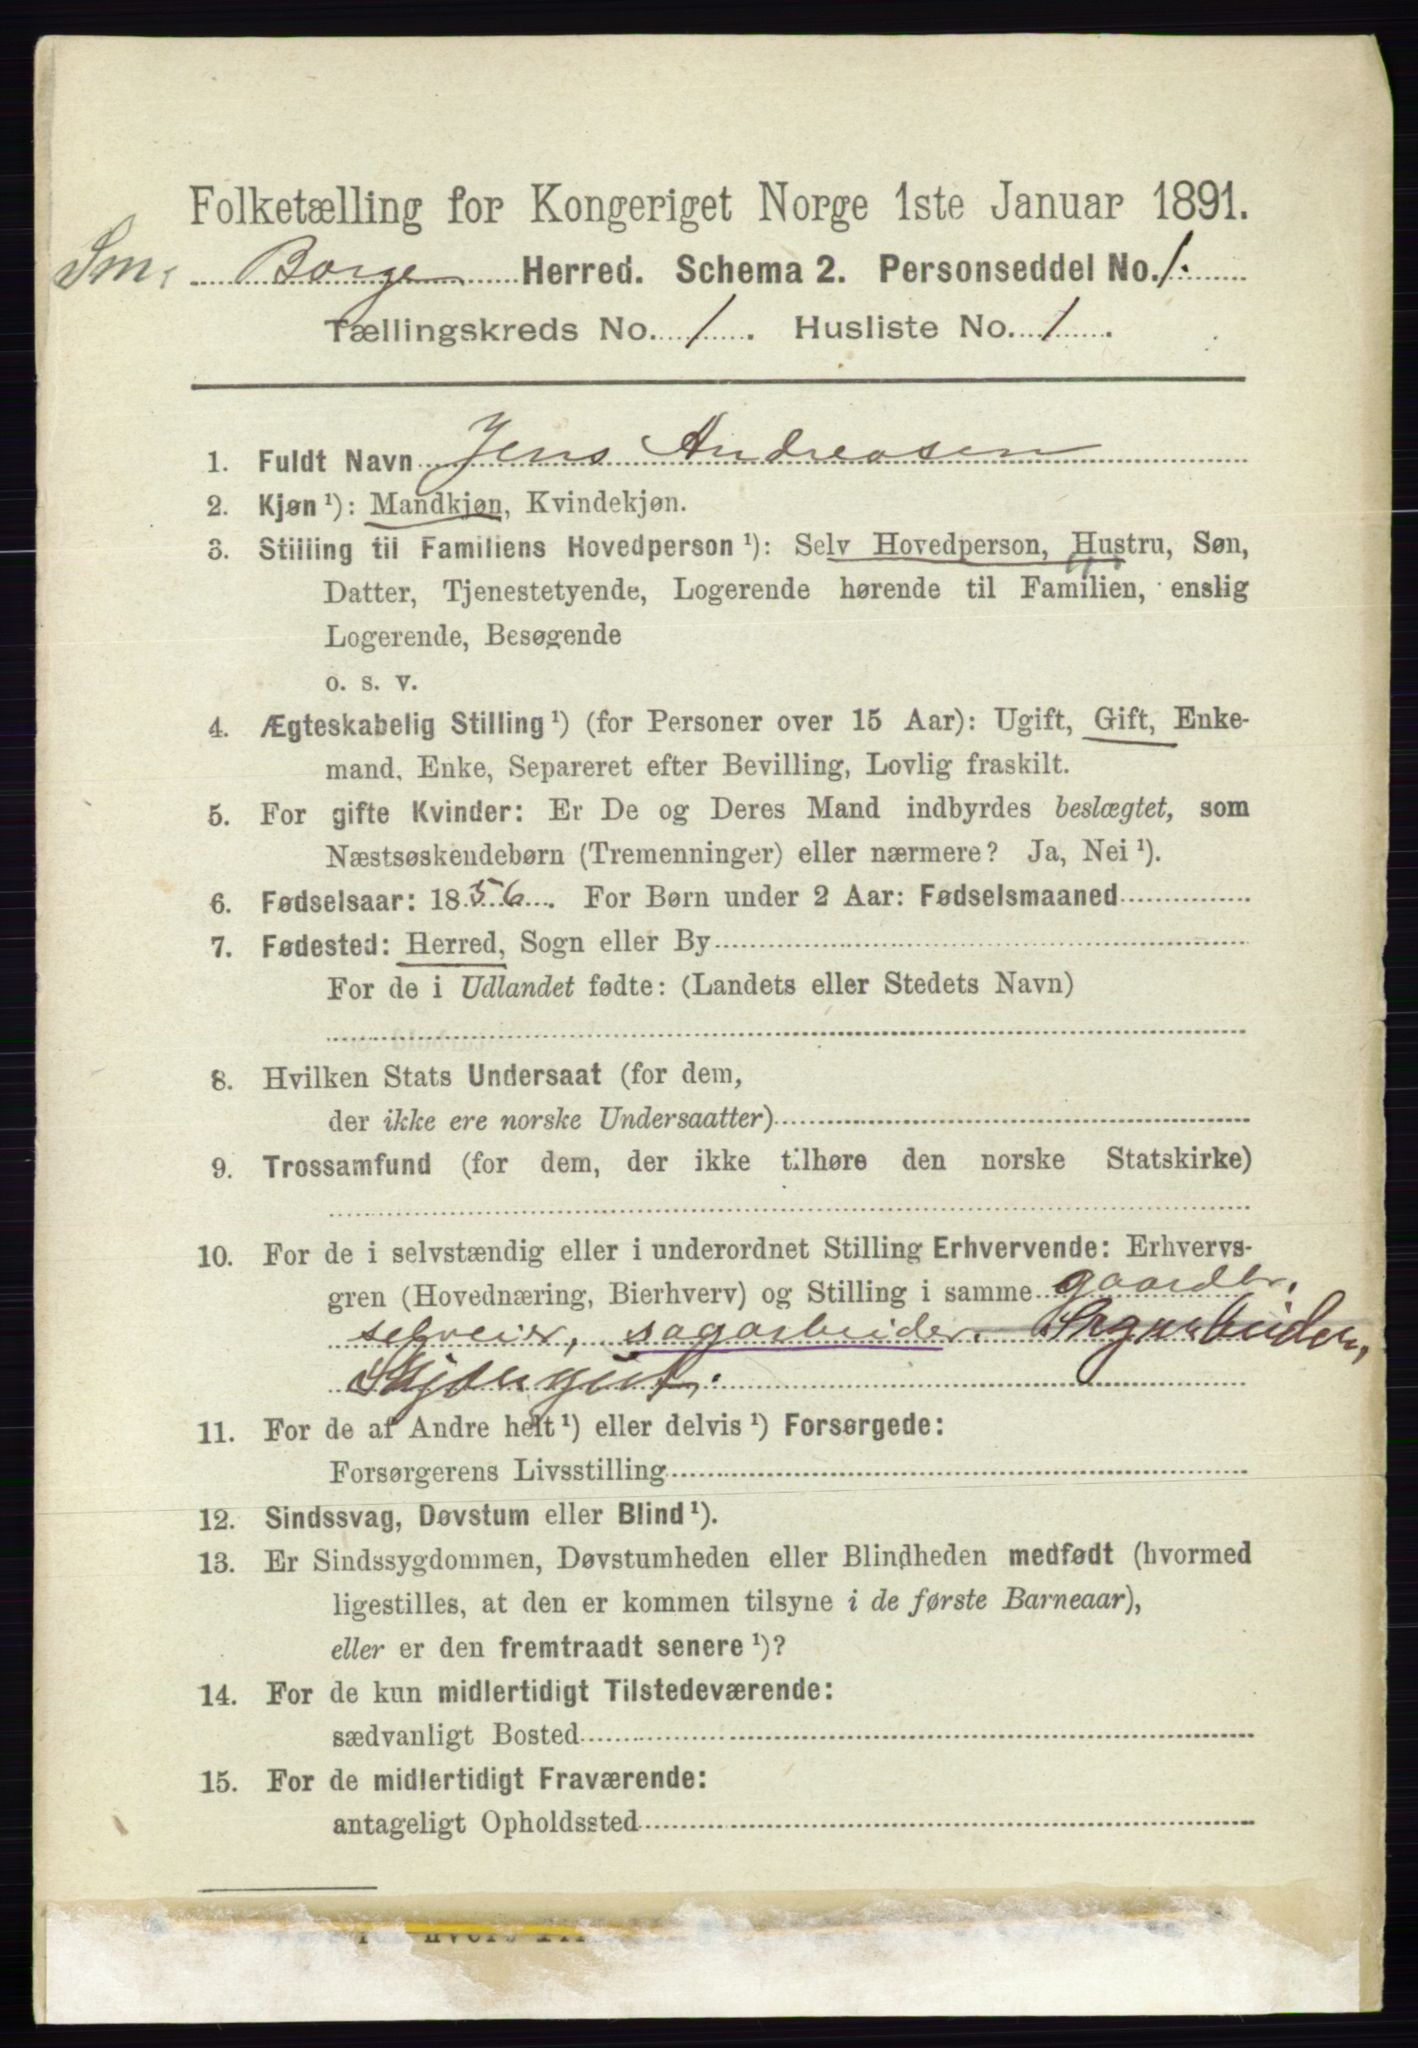 Folketælling for Kongeriget Norge 1ste Januar 1891.
Sm. Borge Herred. Schema 2. Personseddel No. 1.
Tællingskreds No. 1. Husliste No. 1.
1. Fuldt Navn Jens Andreasen
2. Kjøn ¹): Mandkjøn, Kvindekjøn.
3. Stilling til Familiens Hovedperson ¹): Selv Hovedperson, Hustru, Søn,
Datter, Tjenestetyende, Logerende hørende til Familien, enslig
Logerende, Besøgende
o. s. v.
4. Ægteskabelig Stilling ¹) (for Personer over 15 Aar): Ugift, Gift, Enke-
mand, Enke, Separeret efter Bevilling, Lovlig fraskilt.
5. For gifte Kvinder: Er De og Deres Mand indbyrdes beslægtet, som
Næstsøskendebørn (Tremenninger) eller nærmere? Ja, Nei ¹).
6. Fødselsaar: 1856. For Børn under 2 Aar: Fødselsmaaned
7. Fødested: Herred, Sogn eller By
For de i Udlandet fødte: (Landets eller Stedets Navn)
8. Hvilken Stats Undersaat (for dem,
der ikke ere norske Undersaatter)
9. Trossamfund (for dem, der ikke tilhøre den norske Statskirke)
10. For de i selvstændig eller i underordnet Stilling Erhvervende: Erhvervs-
gren (Hovednæring, Bierhverv) og Stilling i samme gaardbr.
selveier, sagarbeider. Sagarbeider,
11. For de af Andre helt ¹) eller delvis ¹) Forsørgede:
Forsørgerens Livsstilling
12. Sindssvag, Døvstum eller Blind ¹).
13. Er Sindssygdommen, Døvstumheden eller Blindheden medfødt (hvormed
ligestilles, at den er kommen tilsyne i de første Barneaar),
eller er den fremtraadt senere ¹)?
14. For de kun midlertidigt Tilstedeværende:
sædvanligt Bosted
15. For de midlertidigt Fraværende:
antageligt Opholdssted